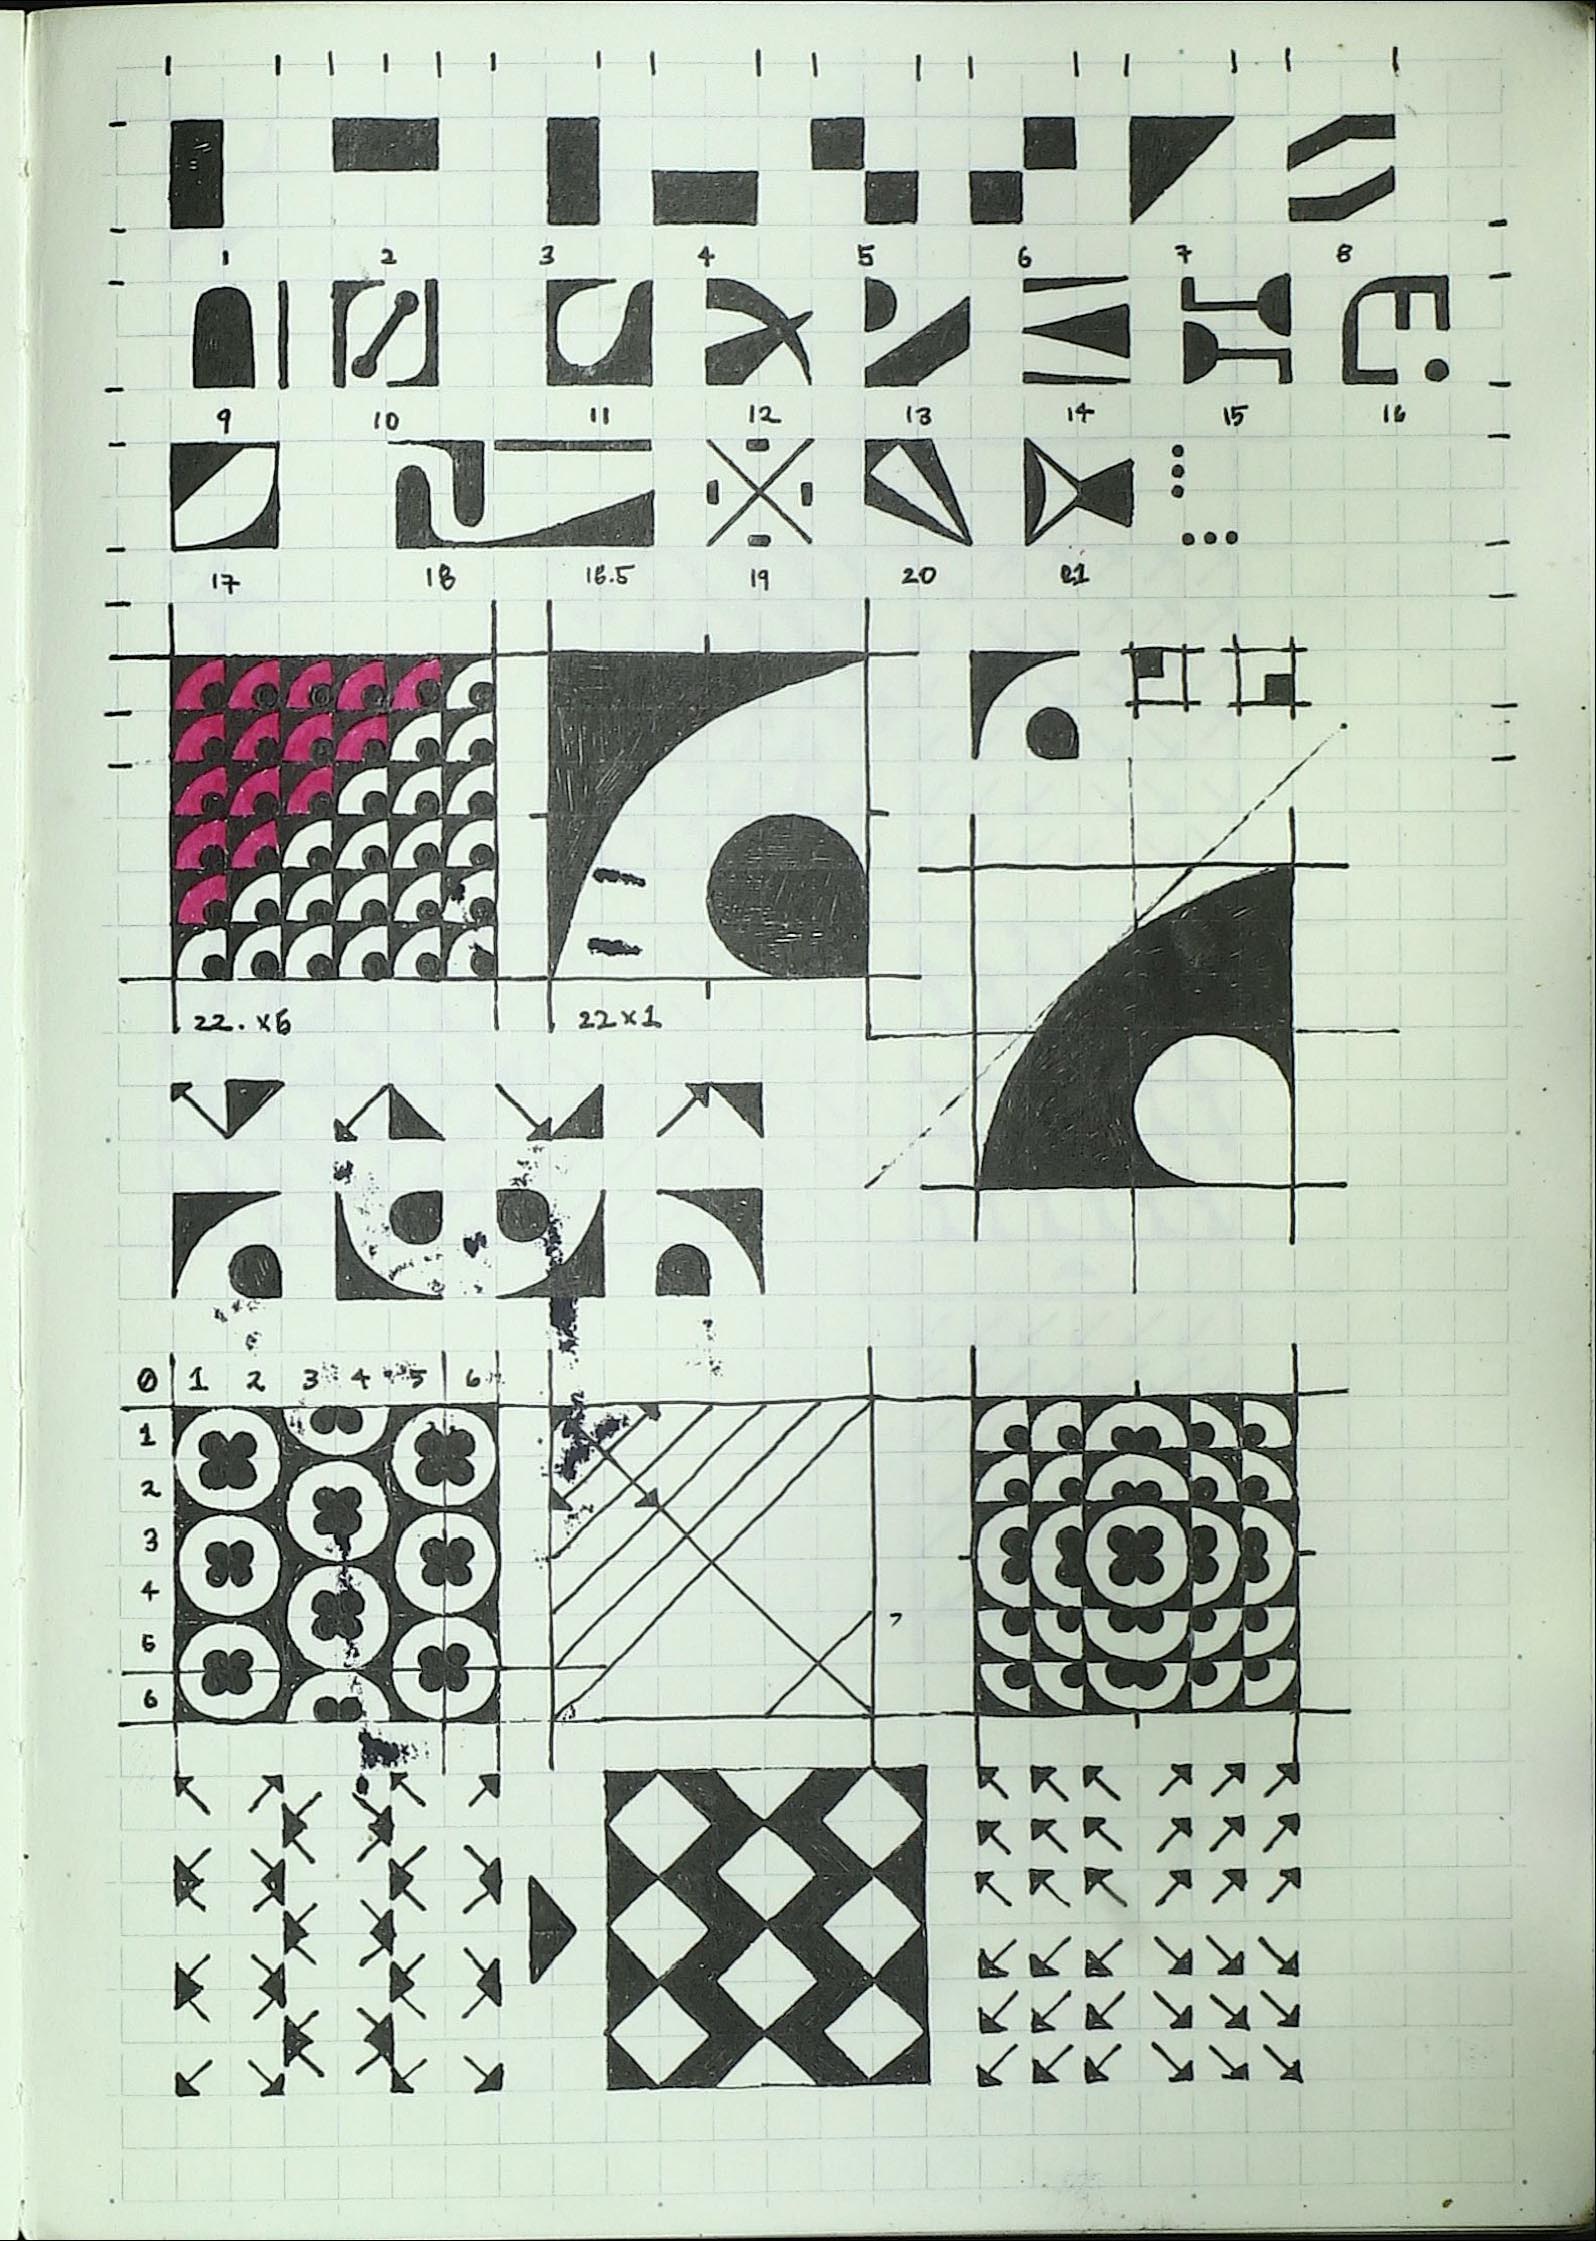 1 2 3 4 5 6 7 8
9 10 11 12 13 14 15 16
17 18 18.5 19 20 21
22. x6 22x1
0 1 2 3 4 5 6
1
2
3
4
5
6